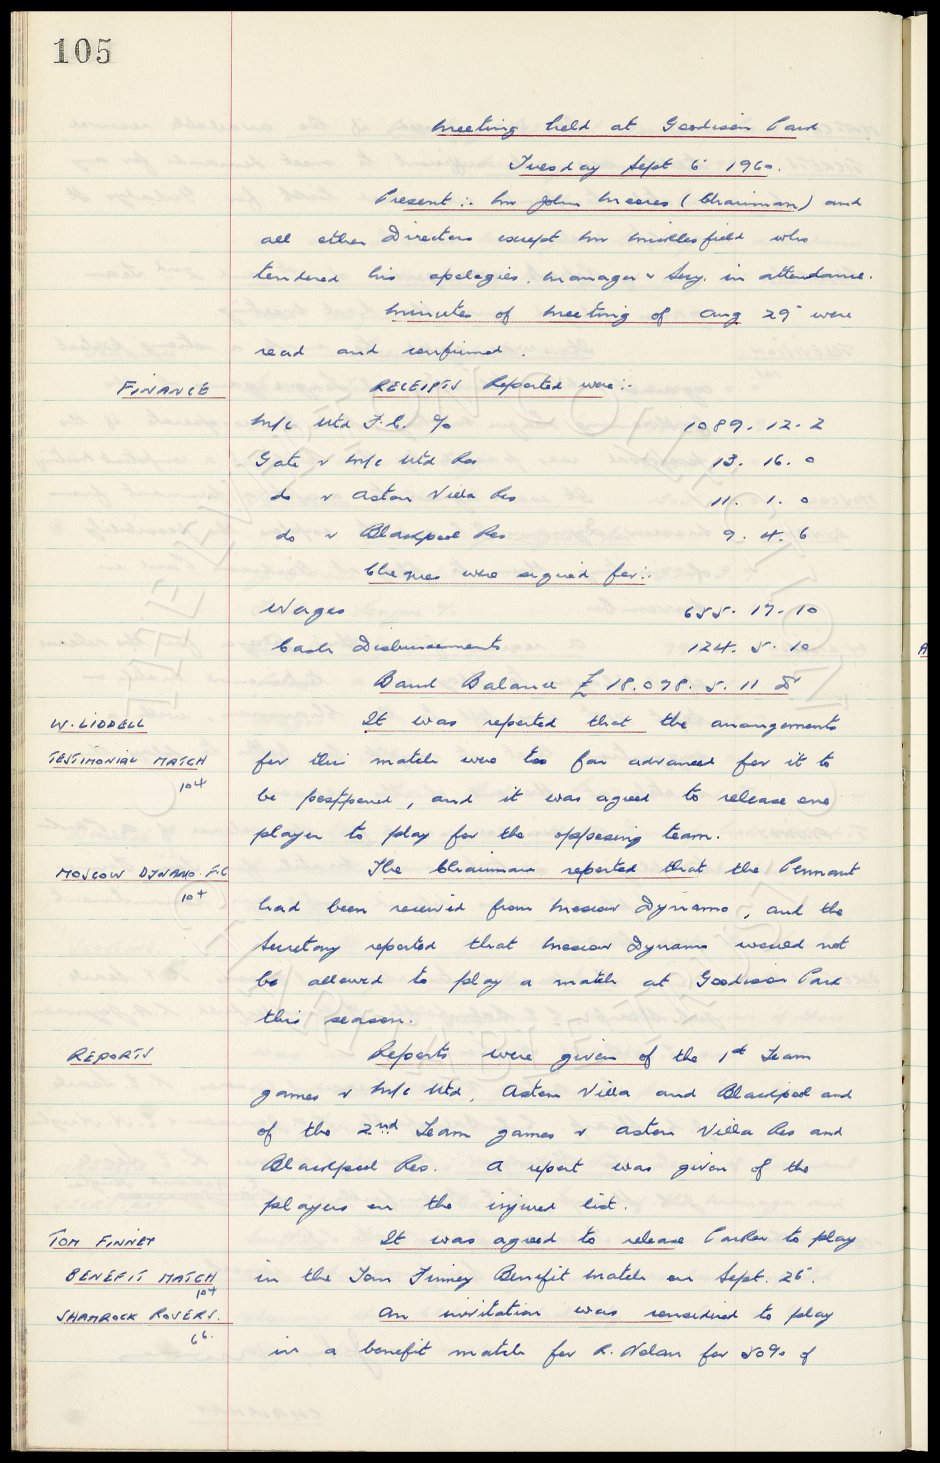 105
Meeting held at Goodison Park
Tuesday Sept 6 1960.
Present :- Mr John Moores (Chairman) and
all other Directors except Mr Micklesfield who
tendered his apologies. Manager & Secy. in attendance.
Minutes of Meeting of Aug 29 were
read and confirmed.
FINANCE RECEIPTS Reported were :-
M/c Utd F.C. % 1089. 12. 2
Gate v M/c Utd Res 13. 16. 0
do v Aston Villa Res 11. 1. 0
do v Blackpool Res 9. 4. 6
Cheques were signed for :-
Wages 655. 17. 10
Cash Disbursements 124. 5. 10
Bank Balance £ 18.098. 5. 11 Dr
W. LIDDELL It was reported that the arrangements
TESTIMONIAL MATCH for this match were too far advanced for it to
104 be postponed, and it was agreed to release one
player to play for the opposing team.
MOSCOW DYNAMO F.C The Chairman reported that the Pennant
104 had been received from Moscow Dynamo, and the
Secretary reported that Moscow Dynamo would not
be allowed to play a match at Goodison Park
this season.
REPORTS Reports were given of the 1st Team
games v M/c Utd, Aston Villa and Blackpool and
of the 2nd Team games v Aston Villa Res and
Blackpool Res. A report was given of the
players on the injured list.
TOM FINNEY It was agreed to release Parker to play
BENEFIT MATCH in the Tom Finney Benefit Match on Sept. 26.
104
SHAMROCK ROVERS. An invitation was considered to play
66. in a benefit match for R. Nolan for 50% of